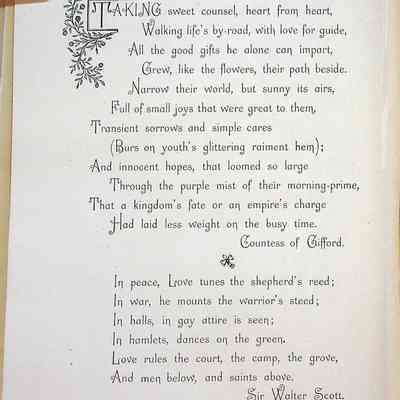 TAKING sweet counsel, heart from heart,
Walking life's by-road, with love for guide,
All the good gifts he alone can impart,
Grew, like the flowers, their path beside.
Narrow their world, but sunny its airs,
Full of small joys that were great to them,
Transient sorrows and simple cares
(Burs on youth's glittering raiment hem);
And innocent hopes, that loomed so large
Through the purple mist of their morning-prime,
That a kingdom's fate or an empire's charge
Had laid less weight on the busy time.
Countess of Gifford.
In peace, Love tunes the shepherd's reed;
In war, he mounts the warrior's steed;
In halls, in gay attire is seen;
In hamlets, dances on the green.
Love rules the court, the camp, the grove,
And men below, and saints above.
Sir Walter Scott.